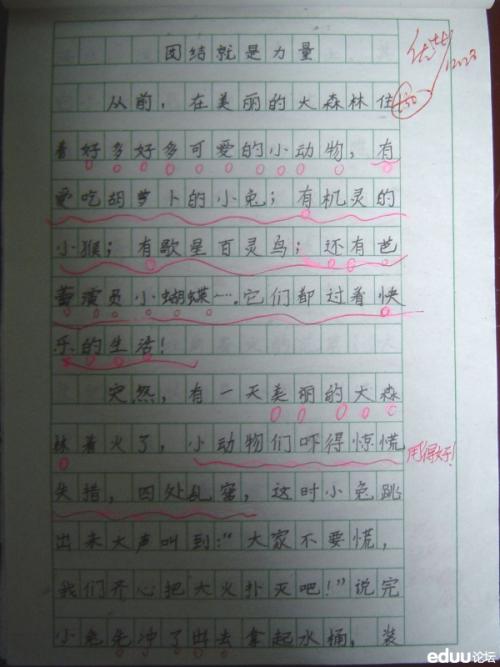 团结就是力量
优
12.23
从前，在美丽的大森林住
着好多好多可爱的小动物，有
爱吃胡萝卜的小兔；有机灵的
小猴；有歌星百灵鸟；还有芭
蕾演员小蝴蝶…它们都过着快
乐的生活！
突然，有一天美丽的大森
林着火了，小动物们吓得惊慌
用得好！
失措，四处乱窜，这时小兔跳
出来大声叫到：“大家不要慌，
我们齐心把大火扑灭吧！”说完
小兔先冲了出去拿起水桶，装
eduu论坛